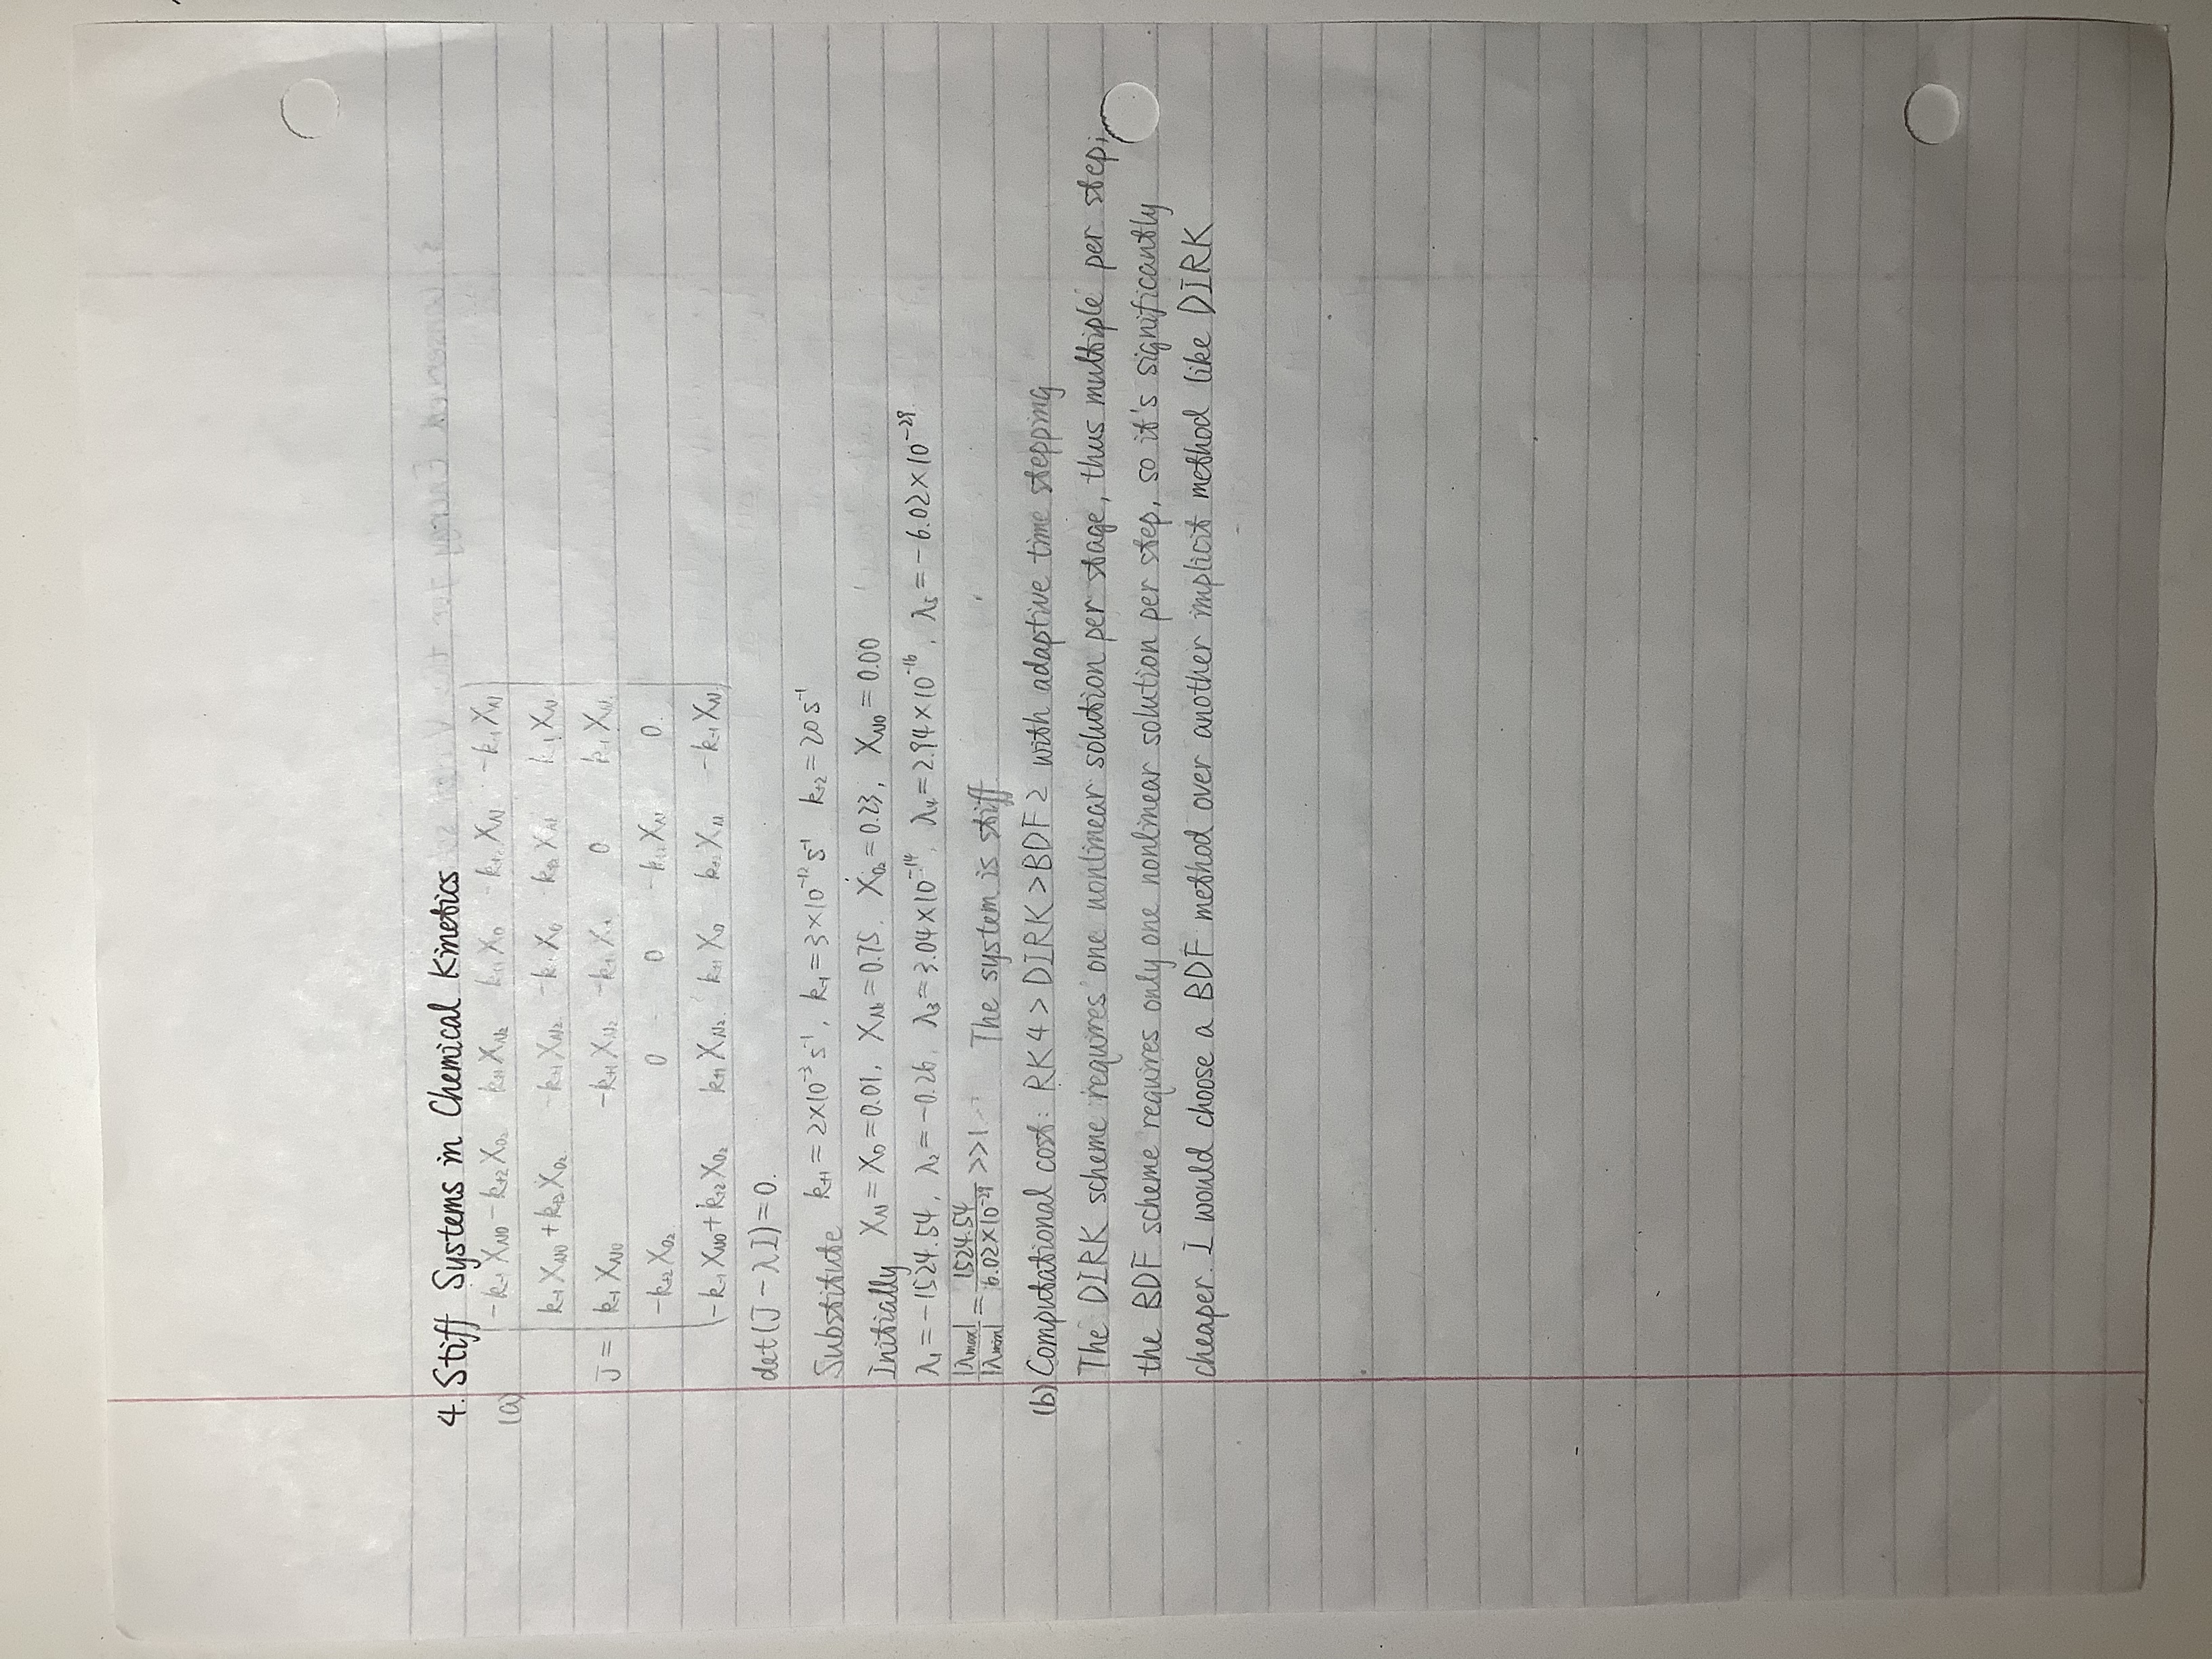 4. Stiff Systems in Chemical Kinetics
(a)
-k₋₁ X_NO - k₊₂ X_O₂ k₊₁ X_N₂ k₊₁ X_O -k₊₂ X_N -k₋₁ X_N
k₋₁ X_NO + k₊₂ X_O₂ -k₊₁ X_N₂ -k₊₁ X_O k₊₂ X_N k₋₁ X_N
J = k₋₁ X_NO -k₊₁ X_N₂ 0 k₋₁ X_N
-k₊₂ X_O₂ 0 0 -k₊₂ X_N 0
-k₋₁ X_NO + k₊₂ X_O₂ k₊₁ X_N₂ k₊₁ X_O k₊₂ X_N -k₋₁ X_N
det(J - λI) = 0.
Substitute k₊₁ = 2×10⁻³ s⁻¹, k₋₁ = 3×10⁻¹² s⁻¹ k₊₂ = 20 s⁻¹
Initially X_N = X_O = 0.01, X_N₂ = 0.75. X_O₂ = 0.23, X_NO = 0.00
λ₁ = -1524.54, λ₂ = -0.26, λ₃ = 3.04×10⁻¹⁴, λ₄ = 2.94×10⁻¹⁶, λ₅ = -6.02×10⁻²⁹
|λmax| / |λmin| = 1524.54 / 6.02×10⁻²⁹ >>1 The system is stiff
(b) Computational cost: RK4 > DIRK > BDF2 with adaptive time stepping
The DIRK scheme requires one nonlinear solution per stage, thus multiple per step;
the BDF scheme requires only one nonlinear solution per step, so it's significantly
cheaper. I would choose a BDF method over another implicit method like DIRK